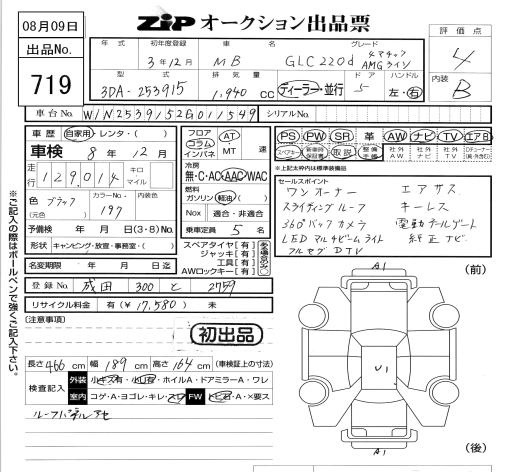 08月09日
ZiP オークション出品票
出品No.
719
評価点
4
内装
B
年式 初年度登録 車名 グレード
3年12月 MB GLC220d 4マチック AMGライン
型式 排気量 ドア ハンドル
3DA-253915 1,940 cc ディーラー・並行 5 左・右
車台No. W1N2539152G011549 シリアルNo.
車歴 自家用・レンタ・( )
車検 8年 12月
走行 129,014 キロ マイル
色 ブラック (元色) カラーNo. 197 内装色
予備検 年 月 日(3・8)No.
形状 キャンピング・放宣・事務室・( )
名変期限 年 月 日迄
フロア コラム インパネ AT MT 速
冷房 無・C・AC・AAC・WAC
燃料 ガソリン・軽油・( )
Nox 適合・非適合
乗車定員 5 名
スペアタイヤ[有]
ジャッキ[有]
工具[有]
AWロックキー[有]
PS PW SR 革 AW ナビ TV エアB
スペアキー 新車時保証書 取説 整備手帳 社外AW 社外ナビ 社外TV
※上記太枠内は標準装備品
セールスポイント
ワンオーナー エアサス
スライディングルーフ キーレス
360°バックカメラ 電動テールゲート
LEDマルチビームライト 純正ナビ
フルセグDTV
登録No. 成田 300 と 2759
リサイクル料金 有(¥17,580) 未
[注意事項]
初出品
長さ466cm 幅189cm 高さ164cm (車検証上の寸法)
検査記入 外装 小キズ有・小凹有・ホイルA・ドアミラーA・ワレ
室内 コゲ・A・ヨゴレ・キレ・スレ FW トビ石・A・×要ス
ルーフパネルアセ
※ご記入の際はボールペンで強くご記入下さい。
A1
(前)
U1
A1
(後)